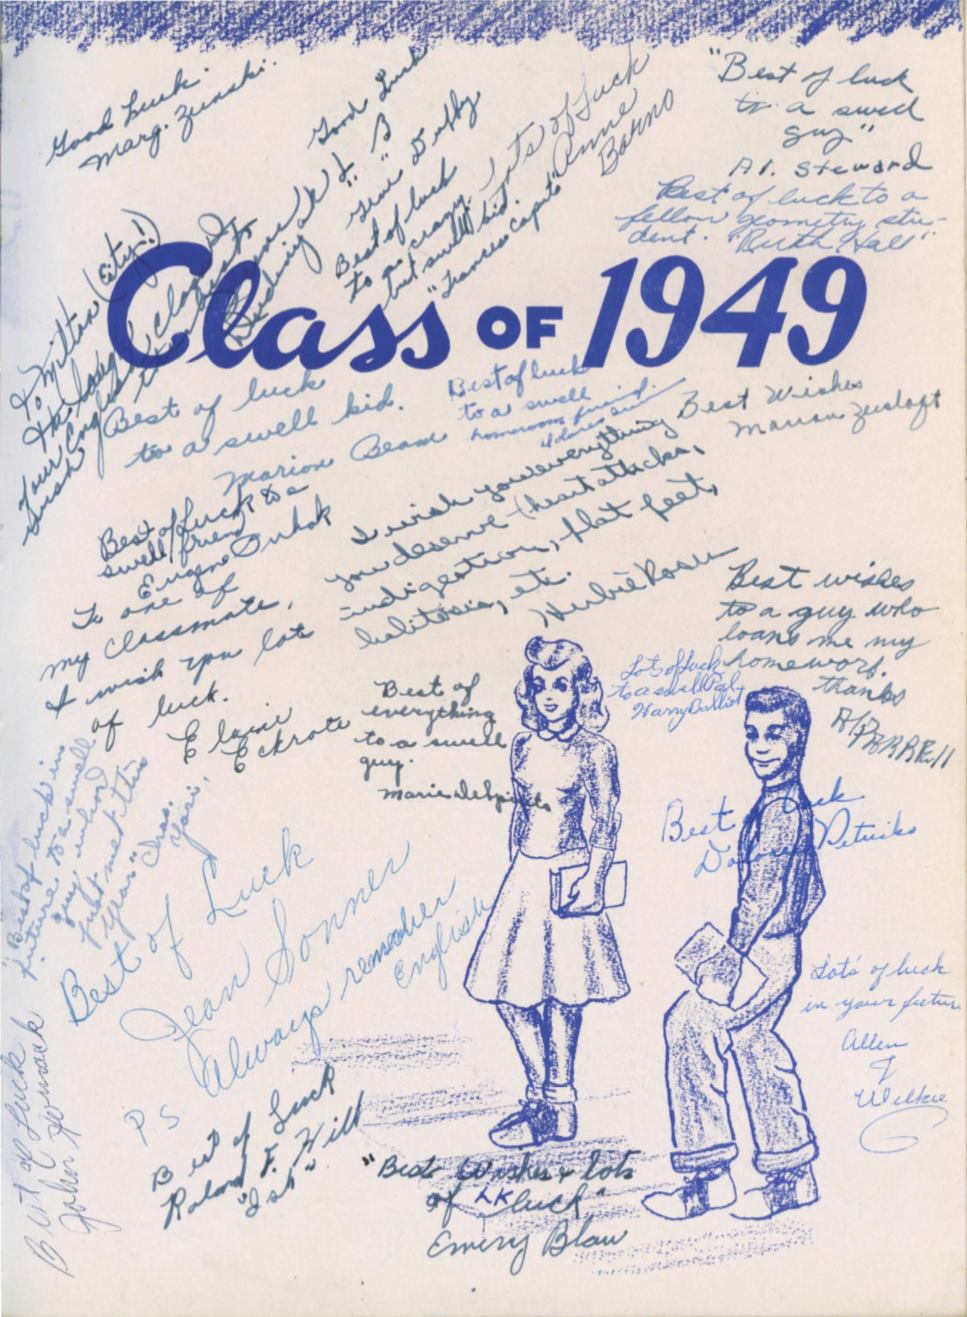 Good Luck
Marg. Zunski.
Good Luck
Gene Duffy
Lots of Luck
Anne
Barno
"Best of luck
to a swell
guy"
Al. Steward
Best of luck to a
fellow geometry stu-
dent. "Ruth Hall".
Best of luck
to a crazy
but swell kid.
"Frances Caputo"
To Milton (City!)
Class of 1949
Best of luck
to a swell kid.
Marion Beam
Best of luck
to a swell
homeroom friend.
Best Wishes
Marian
Best of Luck to a
swell friend
Eugene
I wish you everything
you deserve - (heart attacks,
indigestion, flat feet,
halitosis, etc.
Herbie Rosen
To one of
my classmate,
I wish you lots
of luck.
Elaine
Eckrote
Best wishes
to a guy who
loans me my
homework.
thanks
Lot of luck
to a swell Pal
Harry
Best of
everything
to a swell
guy.
Marie
"Best of luck in
future to a swell
guy whom
I just met this
year" Chas.
Yori.
Best of Luck
Dolores Petusko
Best of Luck
Jean Sonner
P.S Always remember
English
Lots of luck
in your future
Allen
J
Wilkie
Best of Luck
John
Best of Luck
Roland F. Will
"Ish"
"Best Wishes & lots
of LK luck"
Emery Blaw